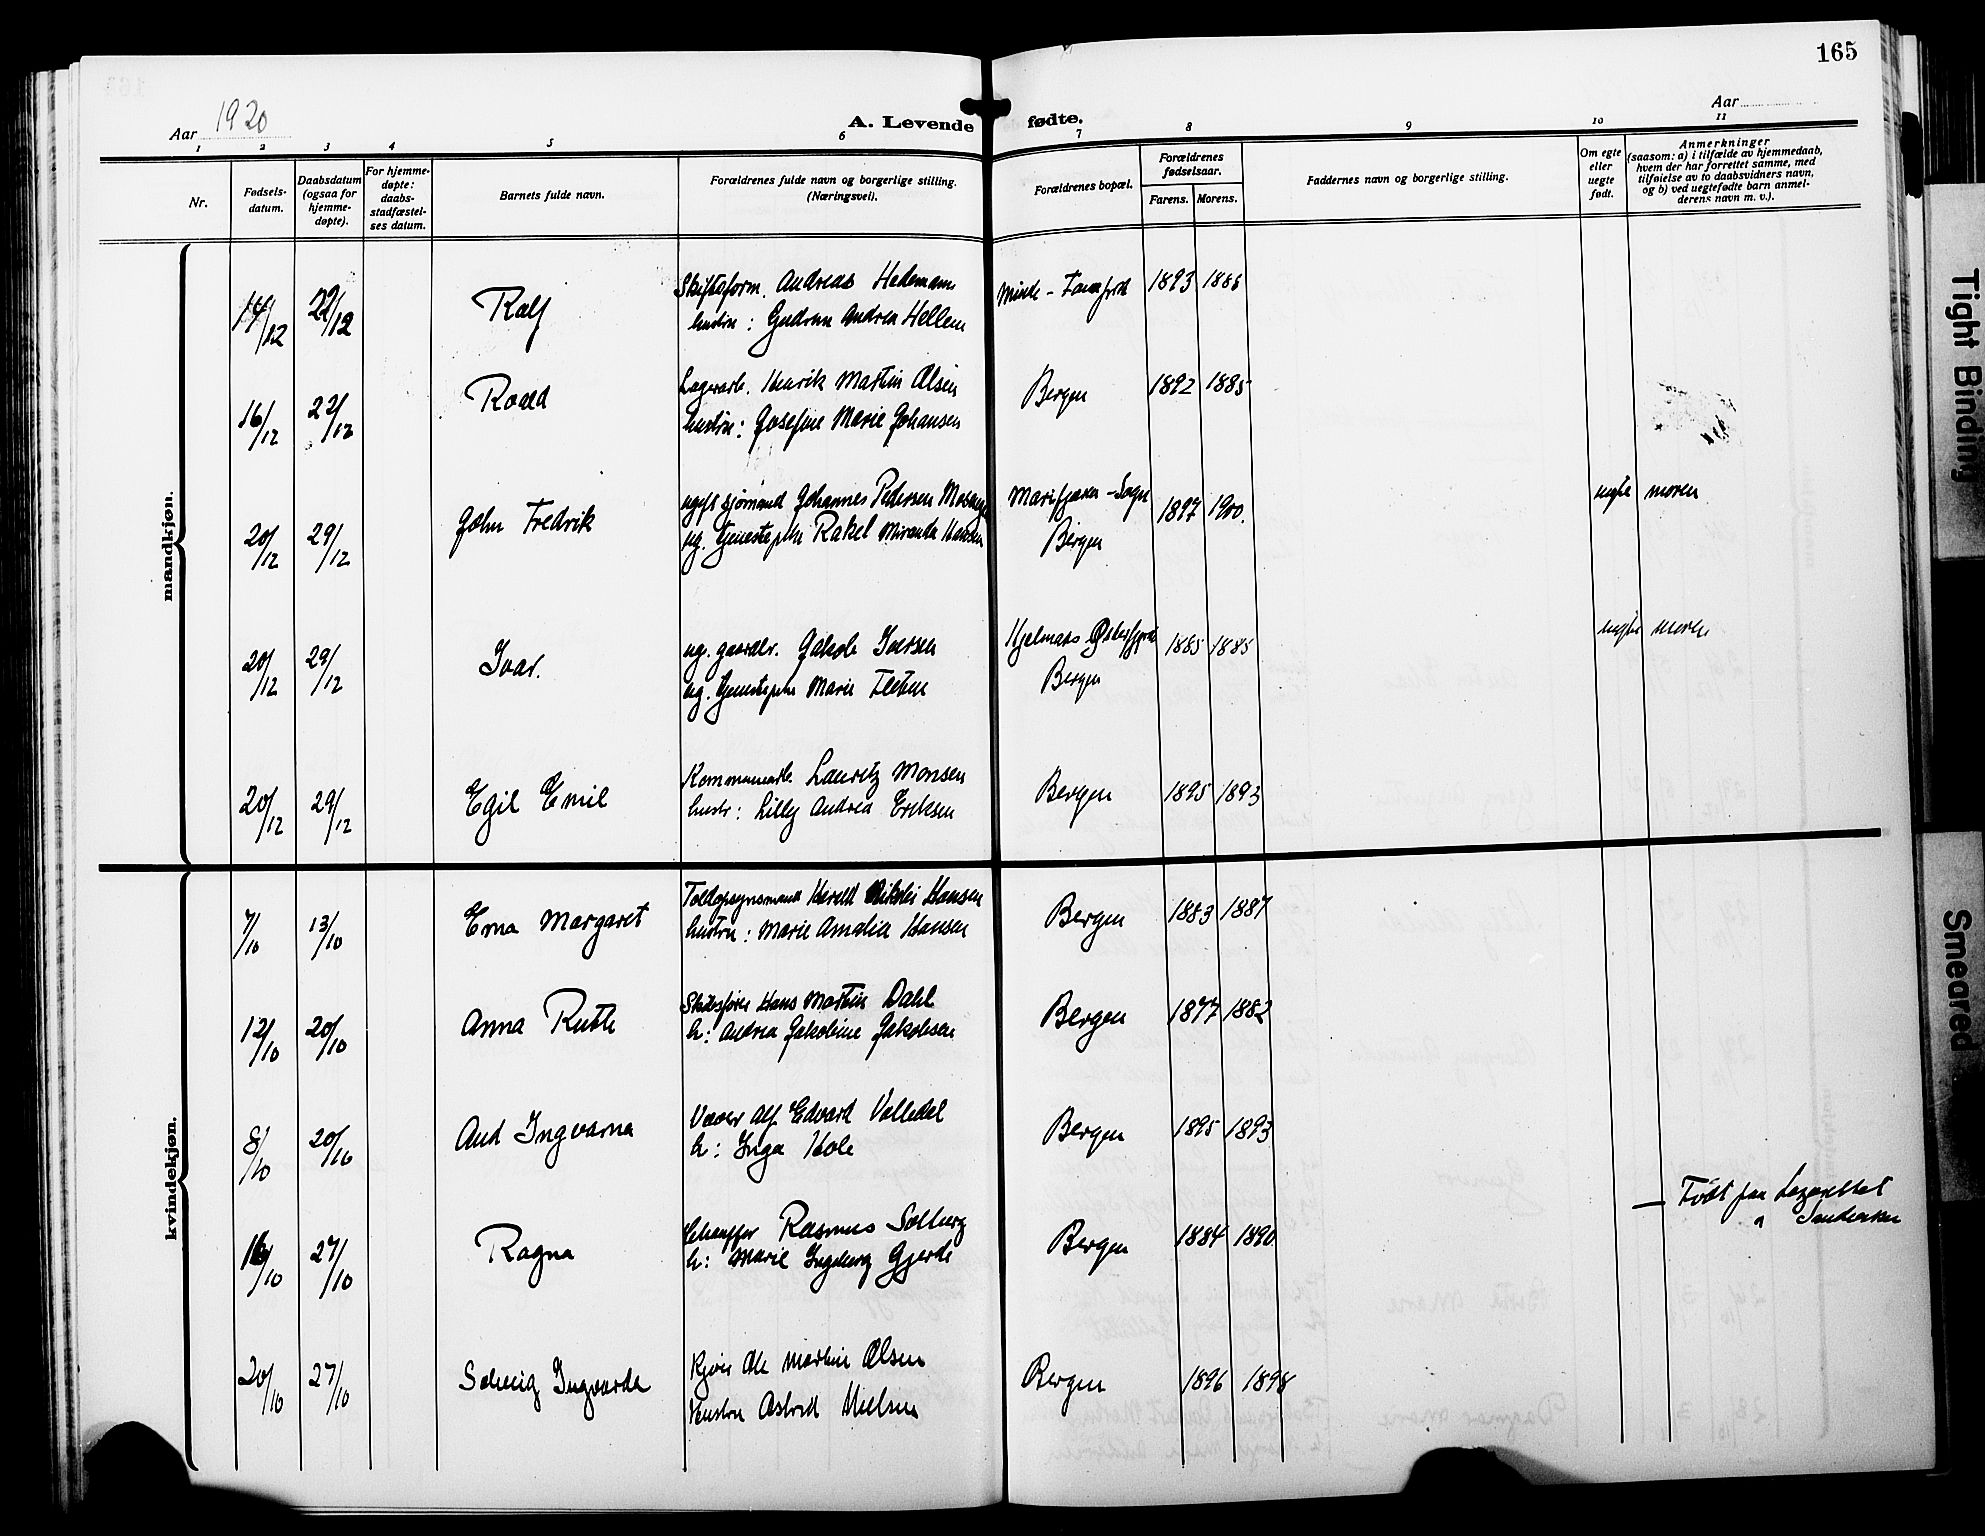 165
Aar 1920
A. Levende fødte.
Aar
1 2 3 4 5 6 7 8 9 10 11
Nr.
Fødsels-
datum.
Daabsdatum
(ogsaa for
hjemme-
døpte).
For hjemme-
døpte:
daabs-
stadfæstel-
ses datum.
Barnets fulde navn.
Forældrenes fulde navn og borgerlige stilling.
(Næringsvei).
Forældrenes bopæl.
Forældrenes
fødselsaar.
Farens. Morens.
Faddernes navn og borgerlige stilling.
Om egte
eller
uegte
født.
Anmerkninger
(saasom: a) i tilfælde av hjemmedaab,
hvem der har forrettet samme, med
tilføielse av to daabsvidners navn,
og b) ved uegtefødte barn anmel-
derens navn m. v.).
mandkjøn.
14/12 22/12 Ralf Skifteform. Andreas Hedemann Minde - 1893 1886
hustru: Gudrun Andrea Hellem
16/12 22/12 Roald Lagerarb. Henrik Martin Olsen Bergen 1892 1885
hustru: Josefine Marie Johansen
20/12 29/12 John Fredrik ugift sjømand Johannes Pedersen Marifjæren - Sogn 1897 1900. uegte moren
ug. tjenestepike Rakel Miranda Hansen Bergen
20/12 29/12 Ivar. ug. gaardbr. Jakob Iversen Hjelmaas Østerfjord 1885 1885 uegte moren
ug. tjenestepike Marie Fletten Bergen
20/12 29/12 Egil Emil Kommunearb. Lauritz Monsen Bergen 1895 1893
hustr: Lilly Andrea Eriksen
kvindekjøn.
7/10 13/10 Erna Margaret Toldopsynsmand Harald Nikolai Hansen Bergen 1883 1887
hustru: Marie Amalia Hansen
12/10 20/10 Anna Ruth Skibsfører Hans Martin Dahl Bergen 1877 1882
h: Andrea Jakobine Jakobsen
8/10 20/10 Aud Ingvarna Væver Alf Edvard Valledal Bergen 1895 1893
h: Inga Hole
16/10 27/10 Ragna Chauffør Rasmus Solberg Bergen 1884 1890 — Født paa Lazarettet
h: Marie Ingeborg Gjerde
20/10 27/10 Solveig Ingvarda Kjører Ole Martin Olsen Bergen 1896 1898
Hustru Astrid Nielsen
Tight Binding
Smeared